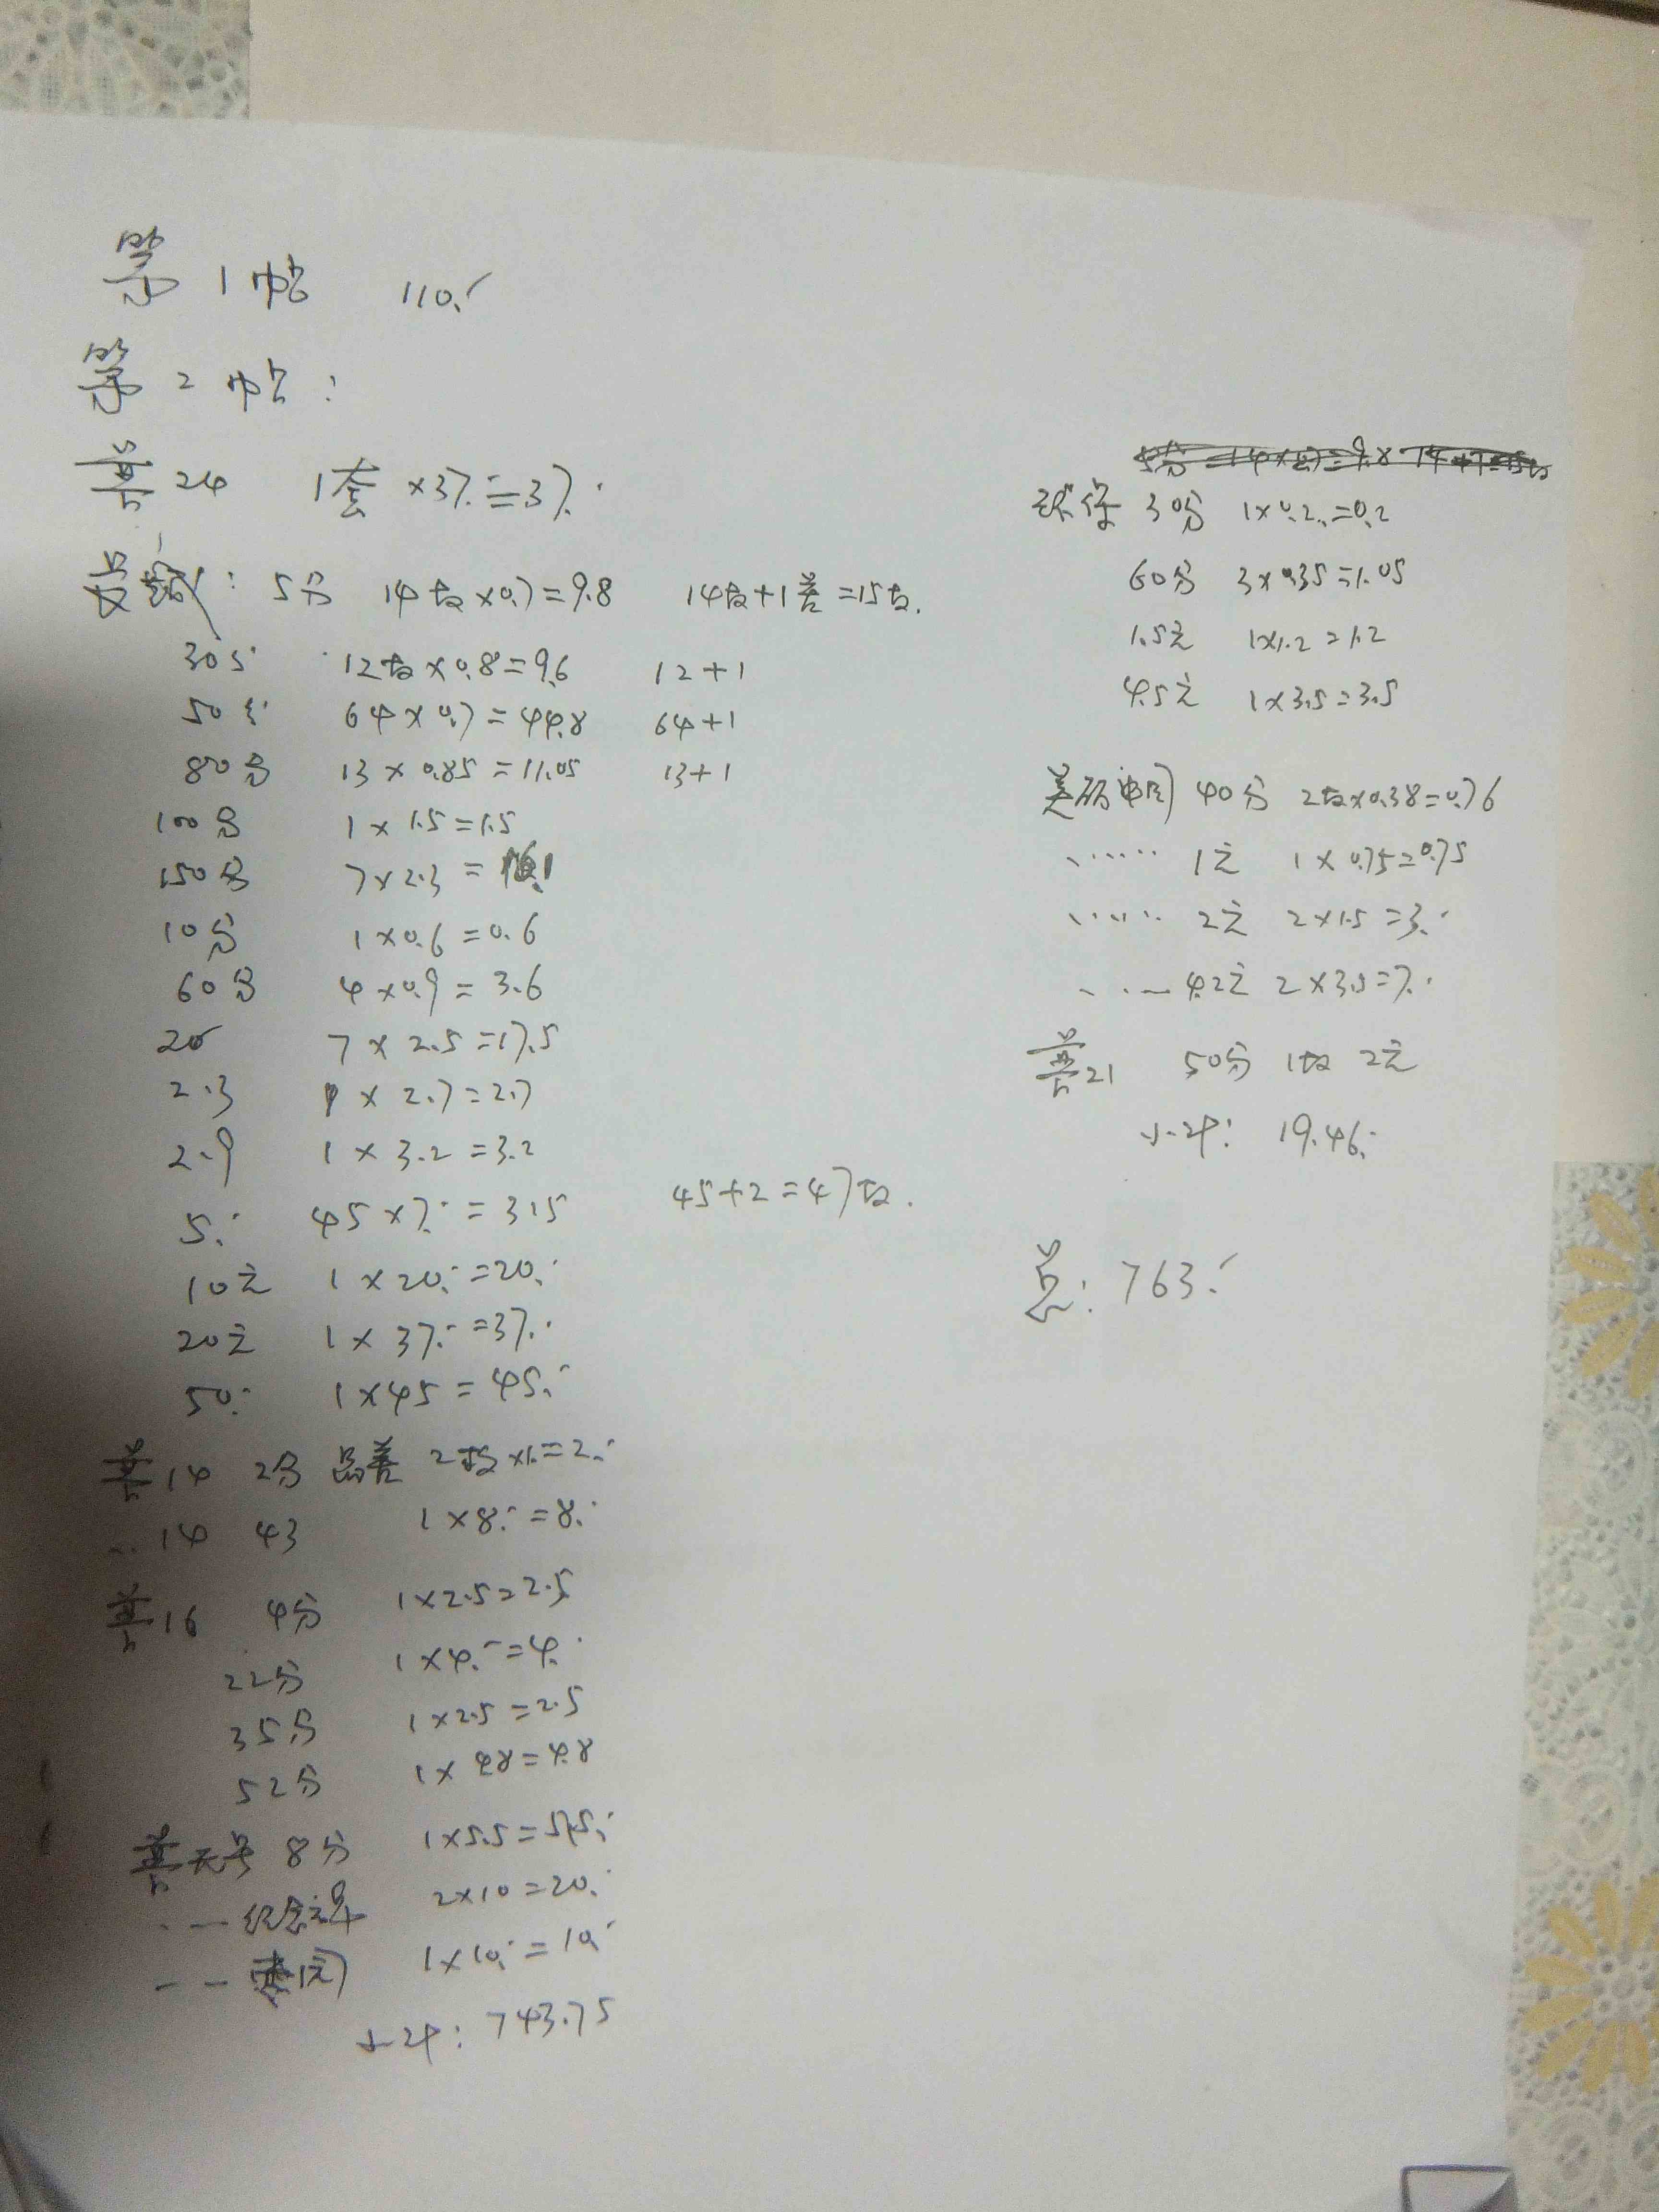 第1帖 110.-
第2帖:
普24 1套×37.-=37.-
5分 14枚×0.7=9.8 14枚+1差=15枚.
30分 12枚×0.8=9.6 12+1
50分 64×0.7=44.8 64+1
80分 13×0.85=11.05 13+1
100分 1×1.5=1.5
150分 7×2.3=16.1
10分 1×0.6=0.6
60分 4×0.9=3.6
20 7×2.5=17.5
2.3 1×2.7=2.7
2.9 1×3.2=3.2
5.- 45×7.-=315 45+2=47枚.
10元 1×20.-=20.-
20元 1×37.-=37.-
50.- 1×45=45.-
普14 2分 品差 2枚×1.=2.-
..14 43 1×8.-=8.-
普16 4分 1×2.5=2.5
22分 1×4.-=4.-
35分 1×2.5=2.5
52分 1×4.8=4.8
普无号 8分 1×5.5=5.5.-
..— 2×10=20.-
— — 1×10.-=10.-
小计: 743.75
环保 30分 1×0.2=0.2
60分 3×0.35=1.05
1.5元 1×1.2=1.2
4.5元 1×3.5=3.5
美丽中国 40分 2枚×0.38=0.76
...... 1元 1×0.75=0.75
...... 2元 2×1.5=3.-
..— 4.2元 2×3.5=7.-
普21 50分 1枚 2元
小计: 19.46.
总: 763.-